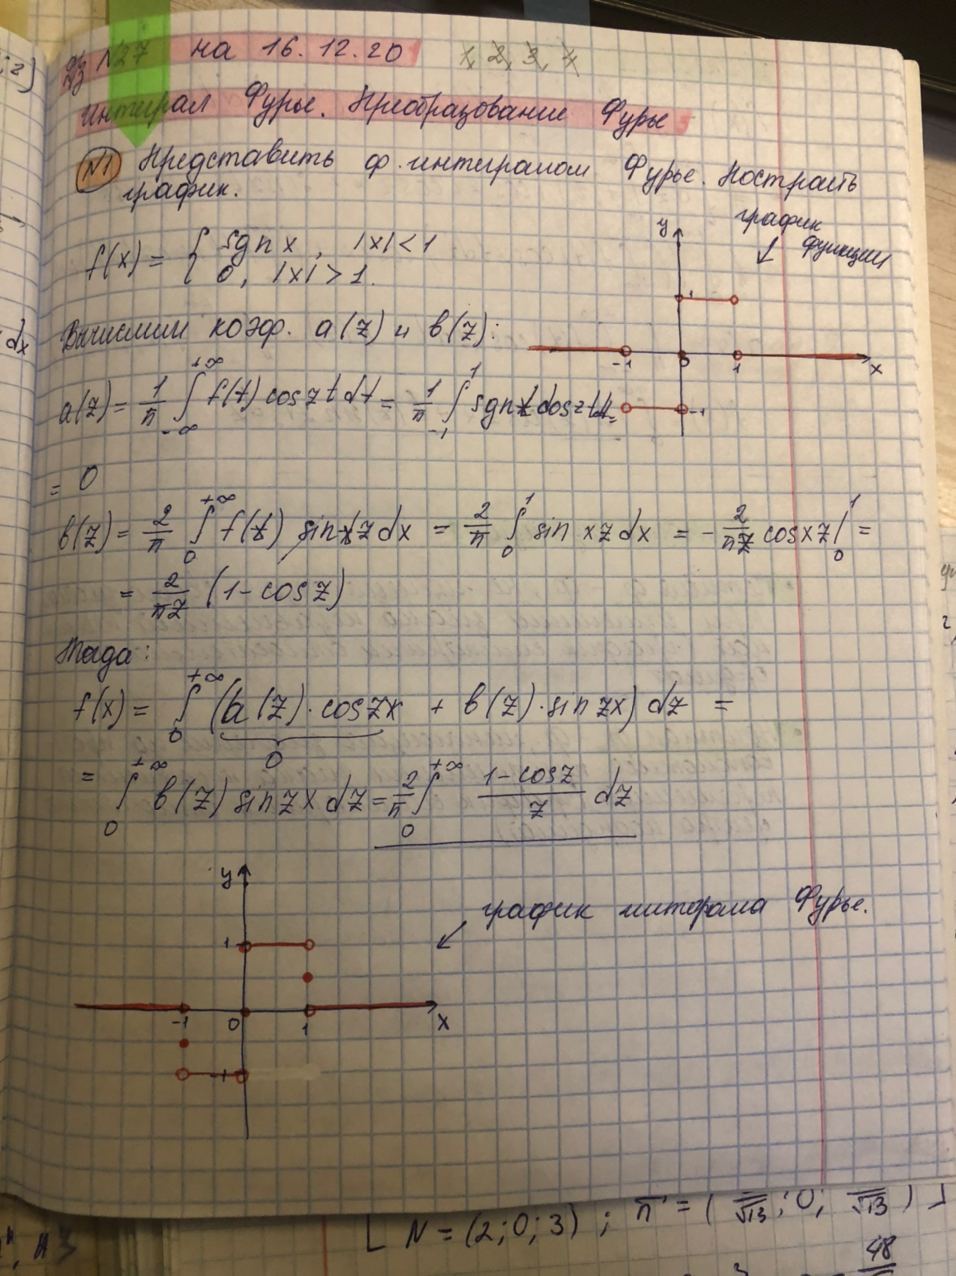 ДЗ №27 на 16.12.20 1, 2, 3, 4
Интеграл Фурье. Преобразование Фурье
№1 Представить ф. интегралом Фурье. Построить
график.
f(x) = { sgn x, |x| < 1
0, |x| > 1.
график
функции
y
1
-1 0 1 x
-1
Вычислим коэф. a(z) и b(z):
a(z) = 1/π ∫_{-∞}^{+∞} f(t) cos zt dt = 1/π ∫_{-1}^{1} sgn t cos zt dt =
= 0
b(z) = 2/π ∫_0^{+∞} f(x) sin xz dx = 2/π ∫_0^1 sin xz dx = - 2/πz cos xz |_0^1 =
= 2/πz (1 - cos z)
Тогда:
f(x) = ∫_0^{+∞} (a(z) · cos zx + b(z) · sin zx) dz =
0
= ∫_0^{+∞} b(z) sin zx dz = 2/π ∫_0^{+∞} (1 - cos z)/z dz
y
график интеграла Фурье.
1
-1 0 1 x
-1
N = (2; 0; 3) ; n = ( /√13 ; 0; /√13 )
48